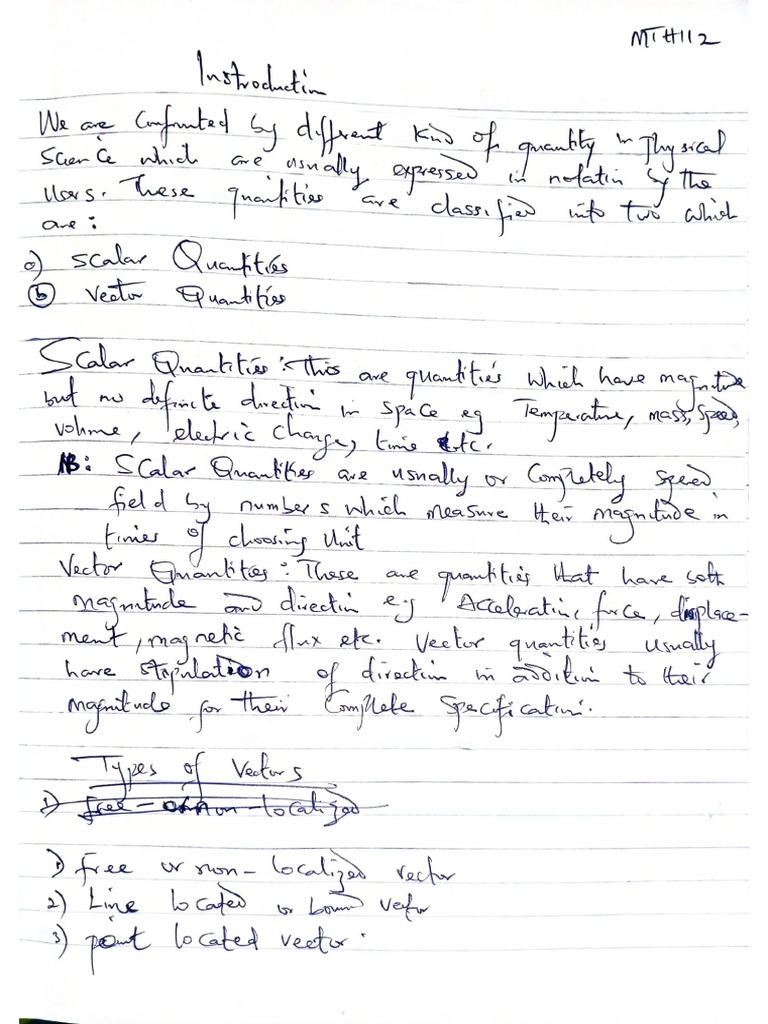 MTH112
Instroduction
We are Confronted by different kind of quantity in Physical
Science which are usually expressed in notation by the
Users. These quantities are classified into two which
are:
a) Scalar Quantities
(b) Vector Quantities
Scalar Quantities: This are quantities which have magnitude
but no definite direction in space eg Temperature, mass, speed,
volume, electric charge, time etc.
NB: Scalar Quantities are usually or Completely speed
field by numbers which measure their magnitude in
times of choosing Unit
Vector Quantities: These are quantities that have both
magnitude and direction e.g Acceleration, force, displace-
ment, magnetic flux etc. Vector quantities usually
have stipulation of direction in addition to their
magnitude for their Complete Specification.
Types of Vectors
1) free or non-localized
1) free or non-localized vector
2) Line located or bound vector
3) point located vector.